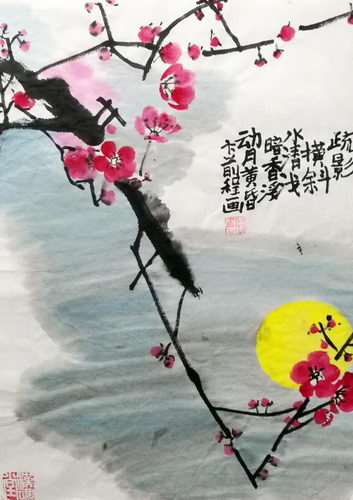 疏影
横斜
水清浅
暗香浮
动月黄昏
前程画